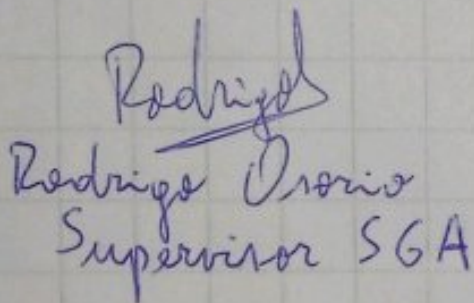 Rodrigo
Rodrigo Osorio
Supervisor SGA